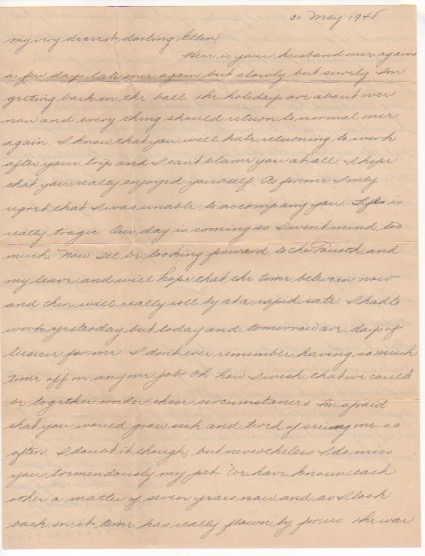 31 May 1948
My very dearest darling Ellen,
Here is your husband once again
a few days late once again but slowly but surely I'm
getting back on the ball. The holidays are about over
now and everything should return to normal once
again. I know that you will hate returning to work
after your trip and I can't blame you at all. I hope
that you really enjoyed yourself. As for me I only
regret that I was unable to accompany you. Life is
really tragic. Our day is coming so I won't mind too
much. Now I'll be looking forward to the Fourth and
my leave and will hope that the time between now
and then will really roll by at a rapid rate. I had to
work yesterday but today and tomorrow are days of
leisure for me. I don't ever remember having so much
time off on any one job. Oh how I wish that we could
be together under these circumstances. I'm afraid
that you would grow sick and tired of seeing me so
often. I doubt it though, but nevertheless I do miss
you tremendously my pet. We have known each
other a matter of seven years now and as I look
back on it time has really flown by for us. The war